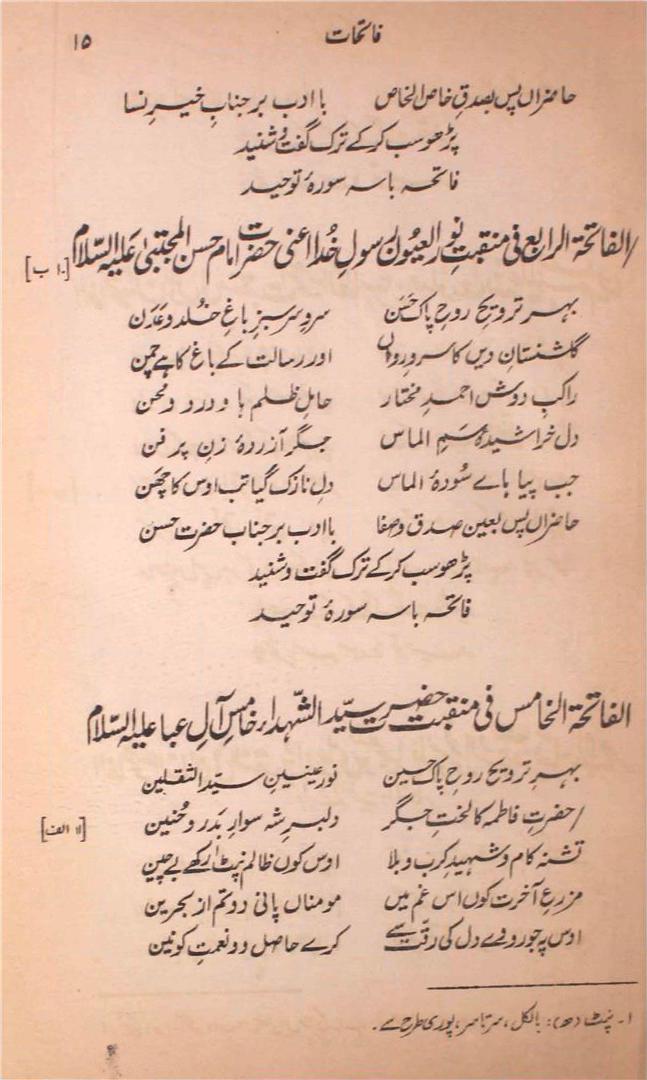 ۱۵ فاتحات
حاضراں پس بصدقِ خاص الخاص باادب بر جنابِ خیرِ نسا
پڑھو سب کر کے ترک گفت و شنید
فاتحہ باسہ سورۂ توحید
/الفاتحۃ الرابع فی منقبتِ نور العیونِ رسولِ خُدا اعنی حضرت امام حسن المجتبیٰ عَلیہ السّلام [۱۰ ب]
بہر ترویح روحِ پاک حَسَن سروِ سرسبزِ باغِ خُلد و عَدَن
گلشنستانِ دیں کا سروِ رواں اور رسالت کے باغ کا ہے چمن
راکبِ دوش احمدِ مختار حاملِ ظلم ہا و درد و محن
دل خراشیدۂ سَمِ الماس جگر آزردۂ زنِ پر فن
جب پیا ہاے سُودۂ الماس دلِ نازک گیا تب اوس کا چھن
حاضراں پس بعین صدق و صفا باادب بر جناب حضرت حسن
پڑھو سب کر کے ترک گفت و شنید
فاتحہ باسہ سورۂ توحید
الفاتحۃ الخامس فی منقبت حضرت سیّد الشّہداء خامسِ آلِ عبا علیہ السّلام
بہرِ ترویح روحِ پاک حسین نورِ عینینِ سیّد الثقلین
/حضرتِ فاطمہ کا لختِ جگر دلبرِ شہ سوارِ بَدر و حُنین [۱۱ الف]
تشنہ کام و شہیدِ کرب و بلا اوس کوں ظالم نپٹ۱ رکھے بے چین
مزرعِ آخرت کوں اس غم میں مومناں پانی دو تم از بحرین
اوس پہ جو رووے دل کی رقّت سے کرے حاصل وو نعمتِ کونین
۱۔ نپٹ (ھ): بالکل، سرتاسر، پوری طرح سے۔